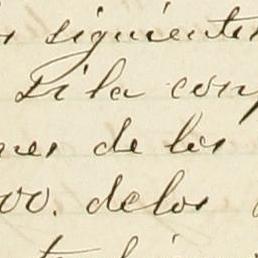 siguientes
Si la con
nes de los
00. de los